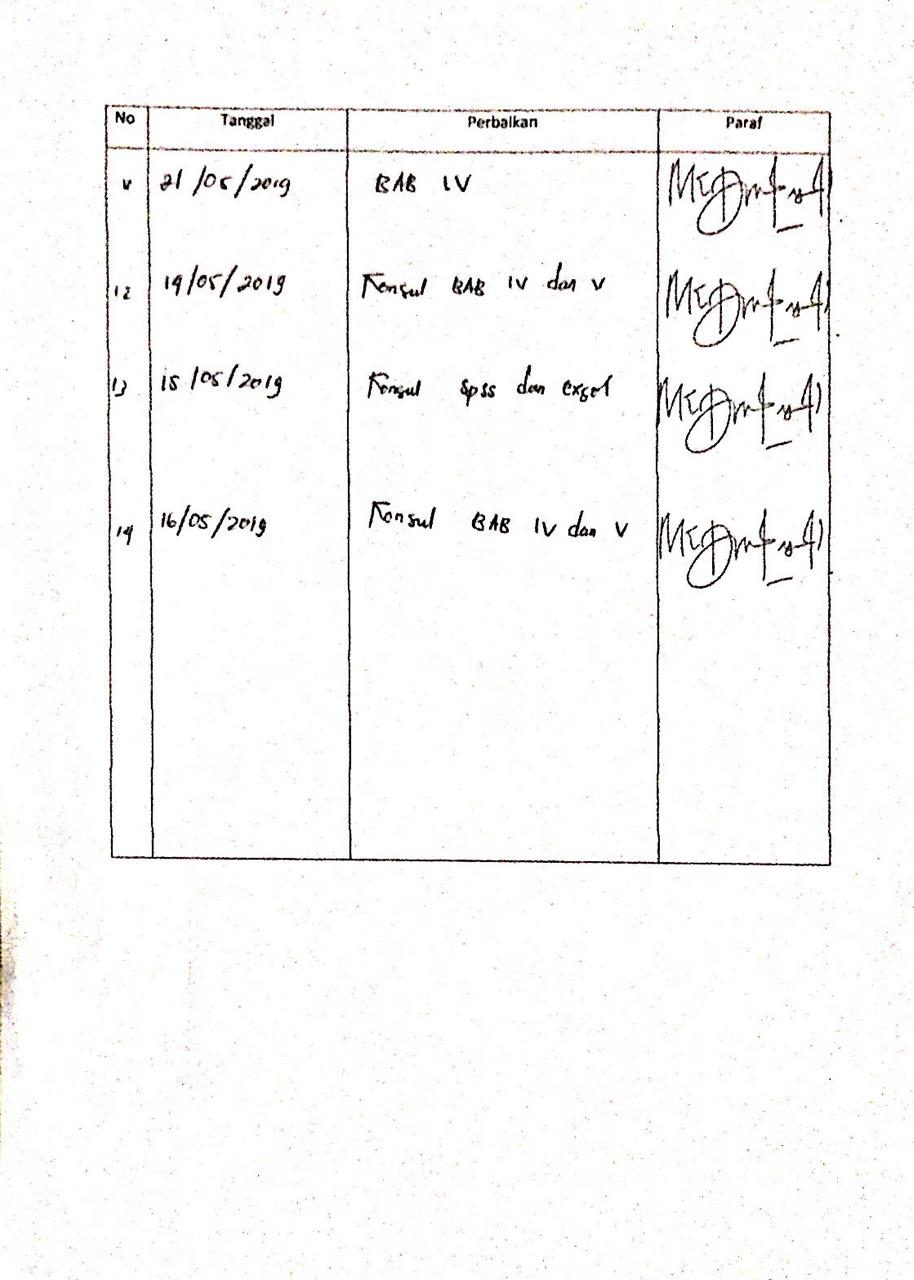 No Tanggal Perbaikan Paraf
21/05/2019 BAB IV
12 14/05/2019 Konsul BAB IV dan V
13 15/05/2019 Konsul spss dan exsel
14 16/05/2019 Konsul BAB IV dan V